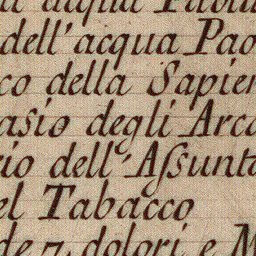 a acqua Paola
dell'acqua Pao
co della Sapien
asio degli Arca
io dell'Aſsunta
el Tabacco
de 7. dolori e M